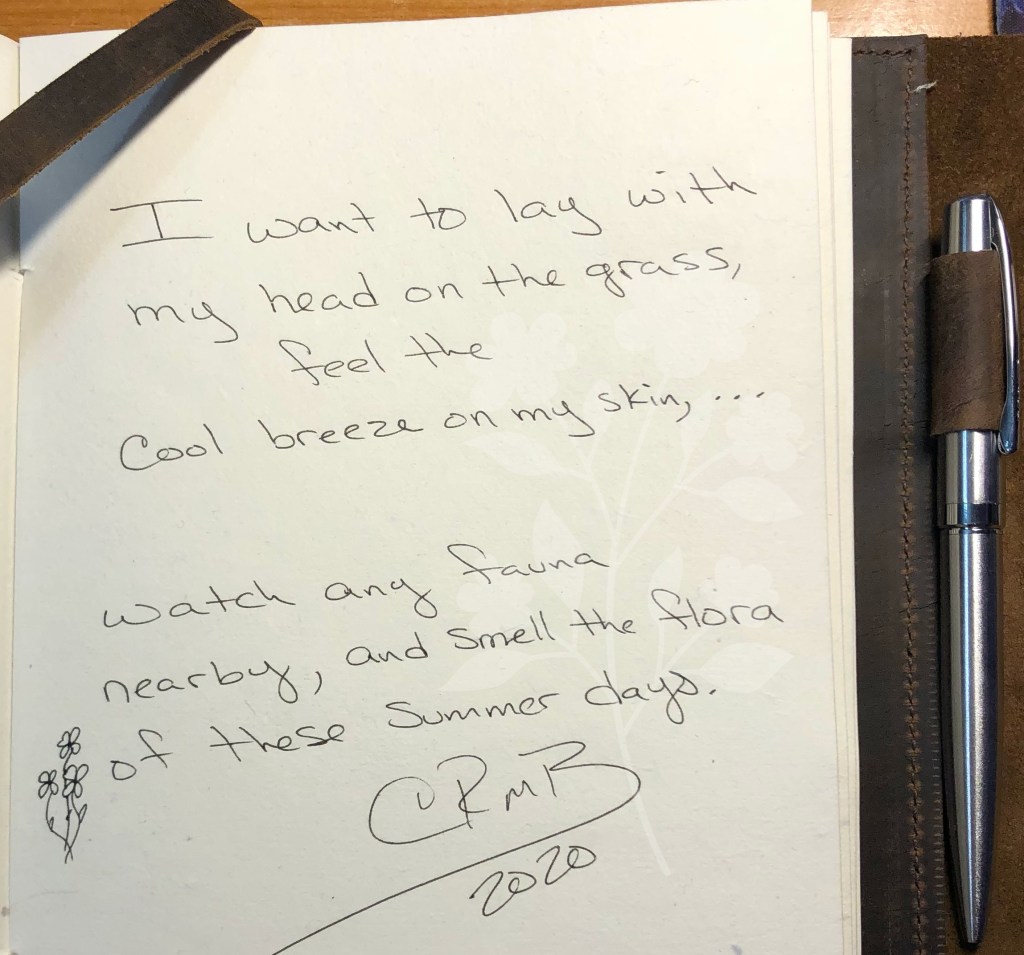 I want to lay with
my head on the grass,
feel the
Cool breeze on my skin, ...
watch any fauna
nearby, and smell the flora
of these Summer days.
CRMB
2020